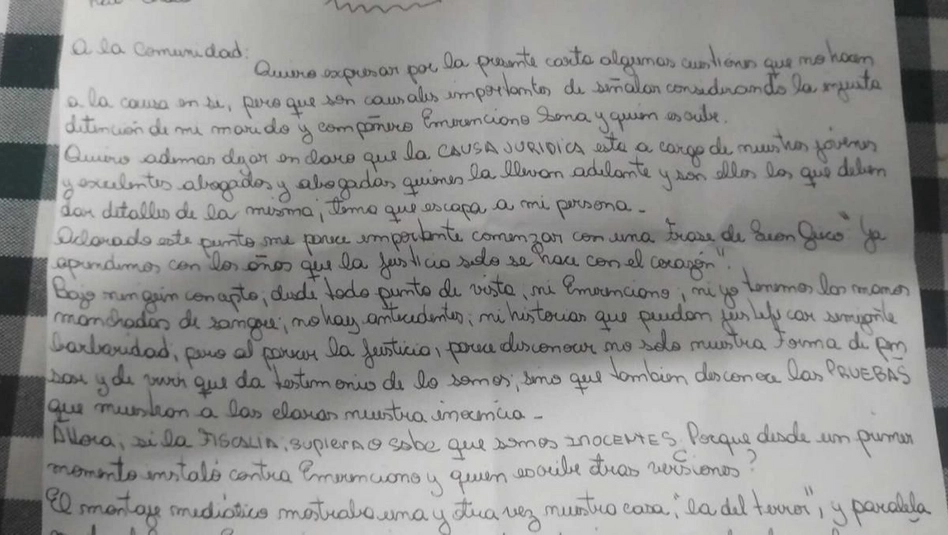 A la Comunidad:
Quiero expresar por la presente carta algunas cuestiones que no hacen
a la causa en si, pero que son causales importantes de señalar considerando la injusta
detención de mi marido y compañero Emerenciano Sena y quien escribe.
Quiero ademas dejar en claro que la CAUSA JURIDICA esta a cargo de nuestros jóvenes
y excelentes abogados y abogadas quienes la llevan adelante y son ellos los que deben
dar detalles de la misma, tema que escapa a mi persona.
Aclarado este punto me parece importante comenzar con una frase de "Ya
aprendimos con los años que la justicia solo se hace con el corazón".
Bajo ningún concepto, desde todo punto de vista, ni Emerenciano, ni yo tenemos las manos
manchadas de sangre, no hay antecedentes, ni historias que puedan justificar semejante
barbaridad, pero al parecer la justicia, parece desconocer no solo nuestra forma de pen
sar y de vivir que da testimonio de lo somos, sino que tambien desconoce las PRUEBAS
que muestran a las claras nuestra inocencia -
Ahora, si la FISCALIA, SUPIERA O sabe que somos INOCENTES. ¿Porque desde un primer
momento instaló contra Emerenciano y quien escribe otras versiones?
El montaje mediático mostraba una y otra vez nuestra casa, "la del terror", y paralela